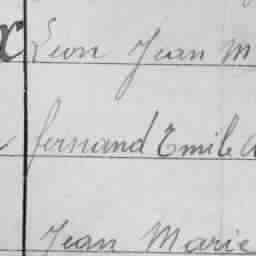 Léon Jean M
fernand Emile A
Jean Marie